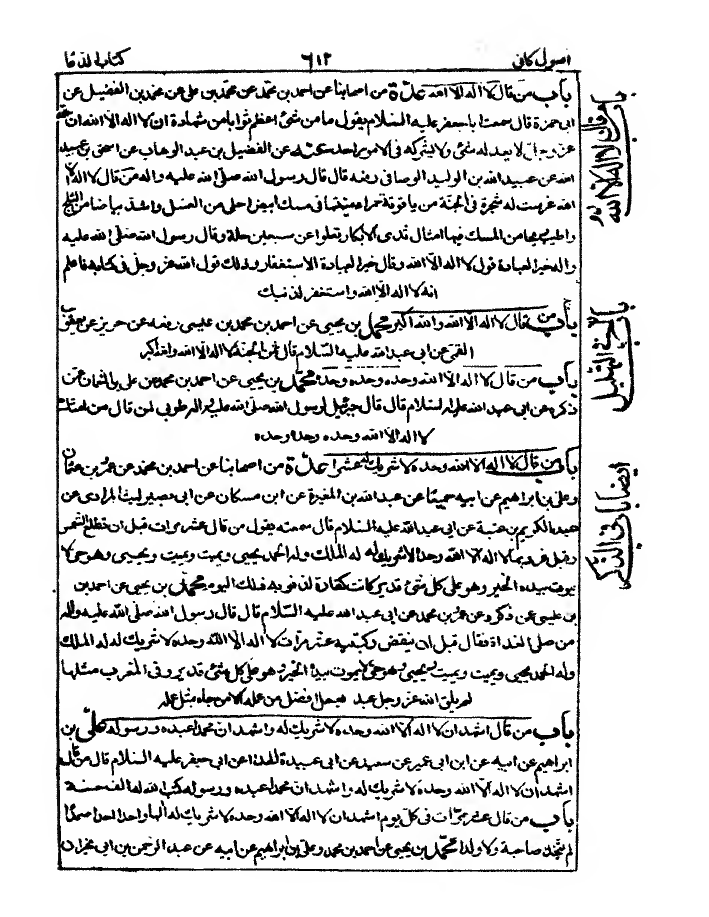 اصول كافى ٦١٢ كتاب الدعا
باب من قال لا اله الا الله عدّة من اصحابنا عن احمد بن محمّد عن محمّد بن على عن محمد بن الفضيل عن
ابى حمزة قال سمعت ابا جعفر عليه السّلام يقول ما من شئ اعظم ثوابا من شهادة ان لا اله الا الله ان الله
عزّ وجلّ لا يعدله شئ ولا يشركه فى الامور احد عنه عن الفضيل بن عبد الوهاب عن اسحق بن عبيد
الله عن عبيد الله بن الوليد الوصافى رفعه قال قال رسول الله صلّى الله عليه واله من قال لا اله الا
الله غرست له شجرة فى الجنة من ياقوتة حمراء منبتها فى مسك ابيض احلى من العسل واشد بياضا من الثلج
واطيب ريحا من المسك فيها امثال ثدى الابكار تعلوا عن سبعين حلة وقال رسول الله صلى الله عليه
واله خير العبادة قول لا اله الا الله وقال خير العبادة الاستغفار وذلك قول الله عز وجل فى كتابه فاعلم
انه لا اله الا الله واستغفر لذنبك
باب من قال لا اله الا الله والله اكبر محمّد بن يحيى عن احمد بن محمد بن عيسى رفعه عن حريز عن يعقوب
القمى عن ابى عبد الله عليه السّلام قال ثمن الجنة لا اله الا الله والله اكبر
باب من قال لا اله الا الله وحده وحده وحده محمّد بن يحيى عن احمد بن محمد عن على بن النعمان عمن
ذكره عن ابى عبد الله عليه السلام قال قال جبرئيل لرسول الله صلى الله عليه واله طوبى لمن قال من امتك
لا اله الا الله وحده وحده وحده
باب من قال لا اله الا الله وحده لا شريك له عشرا عدّة من اصحابنا عن احمد بن محمد عن عمر بن عثمان
وعلى بن ابراهيم عن ابيه جميعا عن عبد الله بن المغيرة عن ابن مسكان عن ابى بصير ليث المرادى عن
عبد الكريم بن عتبة عن ابى عبد الله عليه السلام قال سمعته يقول من قال عشر مرات قبل ان تطلع الشمس
وقبل غروبها لا اله الا الله وحده لا شريك له له الملك وله الحمد يحيى ويميت ويميت ويحيى وهو حى لا
يموت بيده الخير وهو على كل شئ قدير كانت كفارة لذنوبه ذلك اليوم محمد بن يحيى عن احمد بن
بن عيسى عن ذكره عن عمر بن محمد عن ابى عبد الله عليه السّلام قال قال رسول الله صلى الله عليه واله
من صلى الغداة فقال قبل ان ينقض ركبتيه عشر مرات لا اله الا الله وحده لا شريك له له الملك
وله الحمد يحيى ويميت ويميت ويحيى وهو حى لا يموت بيده الخير وهو على كل شئ قدير وفى المغرب مثلها
لم يلق الله عز وجل عبد بعمل افضل من عمله الا من جاء بمثل عمله
باب من قال اشهد ان لا اله الا الله وحده لا شريك له واشهد ان محمدا عبده ورسوله علىّ بن
ابراهيم عن ابيه عن ابن ابى عمير عن سعيد عن ابى عبيدة الحذاء عن ابى جعفر عليه السلام قال من قال
اشهد ان لا اله الا الله وحده لا شريك له واشهد ان محمدا عبده ورسوله كتب الله له الف حسنة
باب من قال عشر مرّات فى كل يوم اشهد ان لا اله الا الله وحده لا شريك له الها واحدا احدا صمدا
لم يتخذ صاحبة ولا ولدا محمّد بن يحيى عن احمد بن محمد وعلى بن ابراهيم عن ابيه عن عبد الرحمن بن ابى نجران
باب من قال لا اله الا الله
باب فى التهليل
ايضا باب فى الذكر